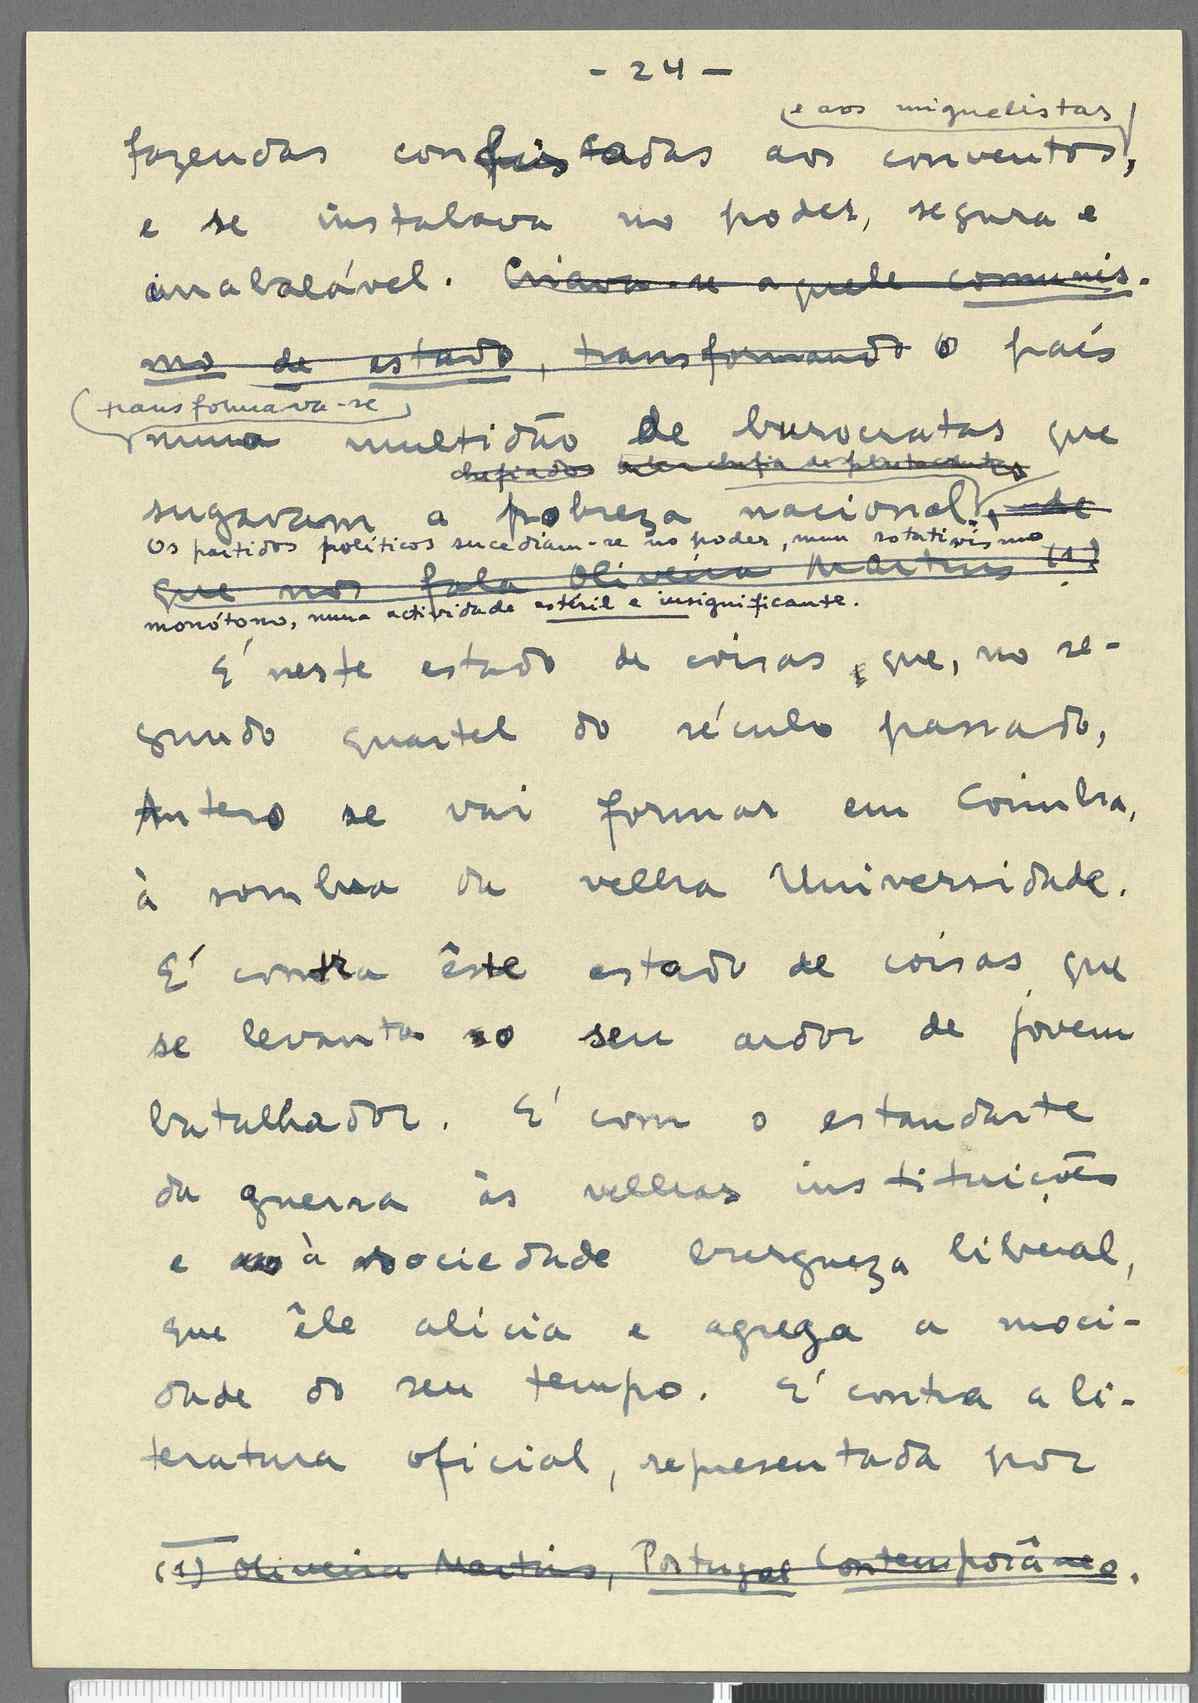 - 24 -
e aos miguelistas
fazendas confiscadas aos conventos,
e se instalava no poder, segura e
inabalável. Criava-se aquele comunis-
mo de estado, transformando o país
transformava-se
numa multidão de burocratas que
chefiados
sugavam a pobreza nacional, de
Os partidos políticos sucediam-se no poder, num rotativismo
que nos fala Oliveira Martins (1)
monótono, numa actividade estéril e insignificante.
É neste estado de coisas que, no se-
gundo quartel do século passado,
Antero se vai formar em Coimbra,
à sombra da velha Universidade.
É contra êste estado de coisas que
se levanta o seu ardor de jovem
batalhador. É com o estandarte
da guerra às velhas instituições
e à sociedade burgueza liberal,
que êle alicia e agrega a moci-
dade do seu tempo. É contra a li-
teratura oficial, representada por
(1) Oliveira Martins, Portugal Contemporâneo.